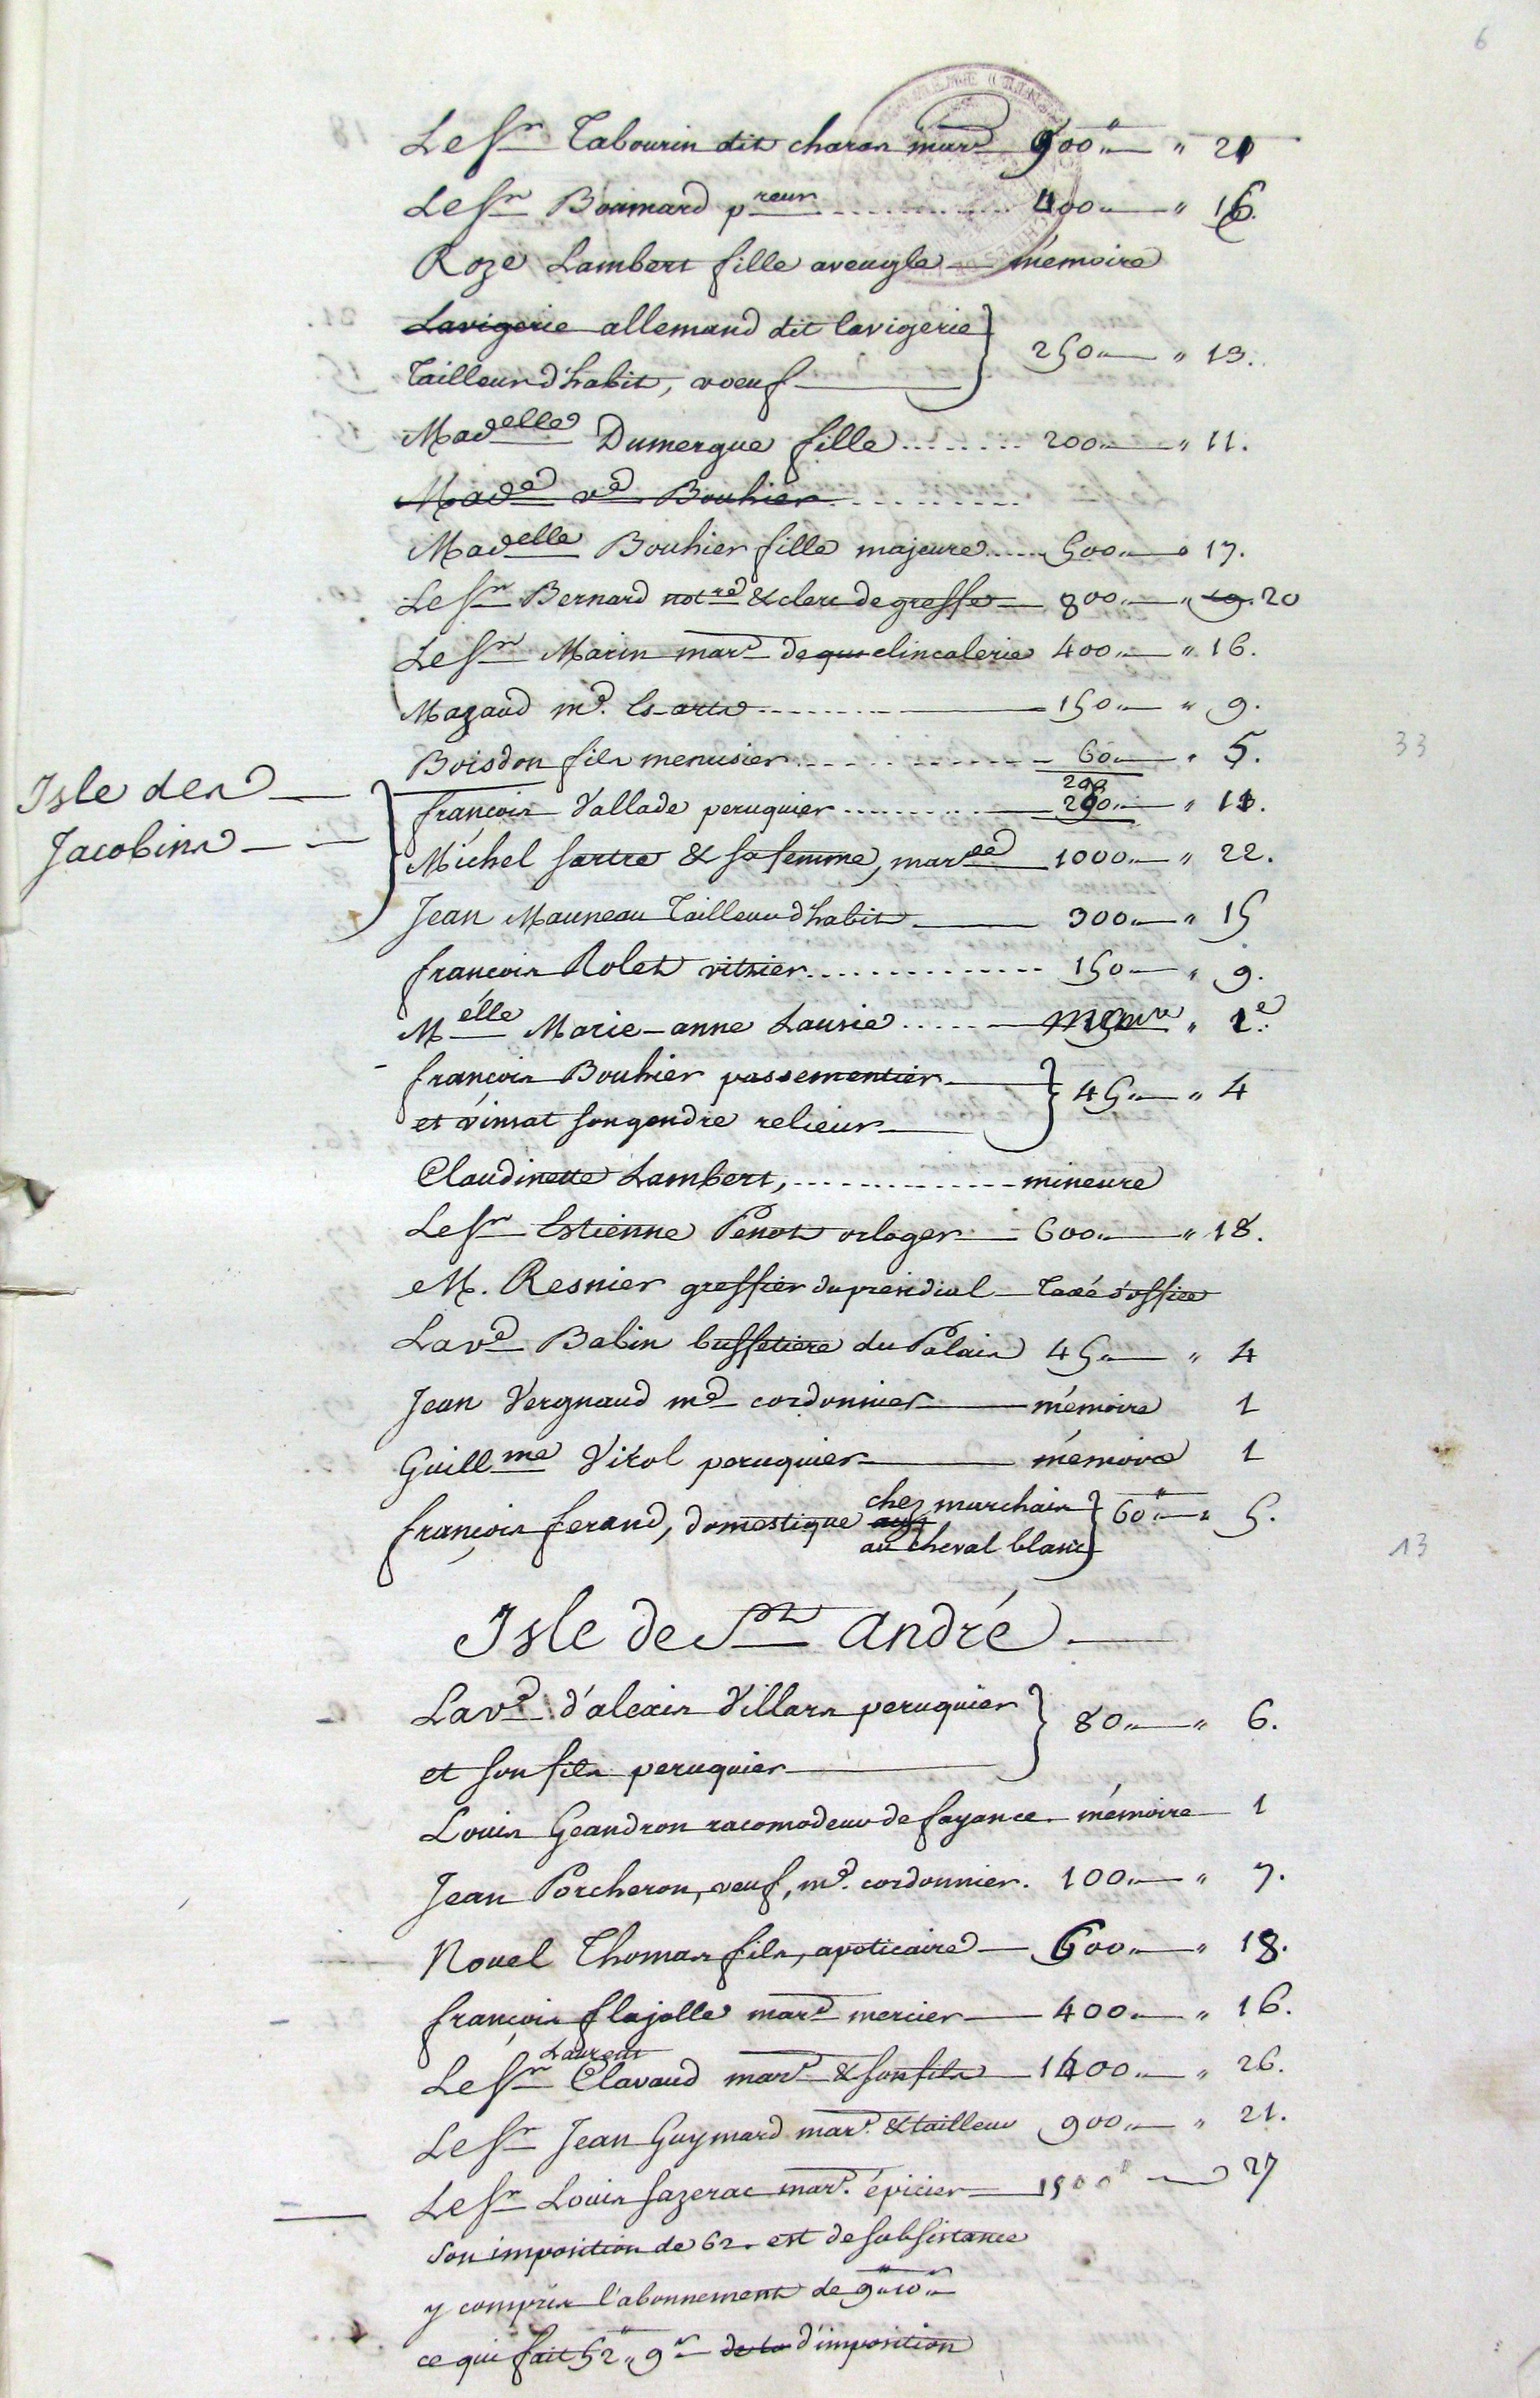 6
Le Sr Tabourin dit charon mard 900" " 21
Le Sr Boumard preur 400" " 16.
Roze Lambert fille aveugle mémoire
Lavigerie allemand dit lavigerie
Tailleur d'habit, voeuf 250" " 13.
Madelle Dumergue fille 200" " 11.
Made ve Bouhier
Madelle Bouhier fille majeure 500" " 17.
Le Sr Bernard notre & clerc de greffe 800" " 19. 20
Le Sr Marin mard de quclincalerie 400" " 16.
Mazaud md. 150" " 9.
Boisdon fils menusier 60" " 5.
33
Isle des
Jacobins
françois Vallade peruquier 200" " 11.
Michel Sartre & sa femme, mardes 1000" " 22.
Jean Mauneau Tailleur d'habit 300" " 15
françois Rolet vitrier 150" " 9.
Melle Marie-anne Lausie " 1e.
françois Bouhier passementier
et vimat son gendre relieur 45" " 4
Claudinette Lambert, mineure
Le Sr Estienne Penot orloger 600" " 18.
M. Resnier greffier du presidial Taxé d'office
La ve Babin buffetiere du Palais 45" " 4
Jean Vergnaud md cordonnier mémoire 1
Guillme Virol peruquier mémoire 1
françois ferand, domestique chez marchais
au cheval blanc 60" " 5.
13
Isle de St André
La ve d'alexis Villars peruquier
et son fils peruquier 80" " 6.
Louis Geandron racomodeur de fayance mémoire 1
Jean Porcheron, veuf, md. cordonnier. 100" " 7.
Nouel Thomas fils, apoticaire 600" " 18.
françois flajolle mard mercier 400" " 16.
Laurent
Le Sr Clavaud mard & son fils 1400" " 26.
Le Sr Jean Guymard mard. & tailleur 900" " 21.
Le Sr Louis Sazerac mard. épicier 1500" 27
Son imposition de 62. est de subsistance
y compris l'abonnement de 9" 10s
ce qui fait 52" 9s de la d'imposition